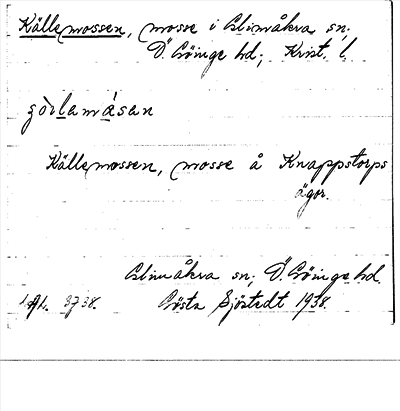 Källemossen, mosse i Glimåkra sn;
Ö. Göinge hd; Krist. l.
Källemossen, mosse å Knappstorps
ägor.
Glimåkra sn; Ö. Göinge hd.
Gösta Sjöstedt 1938.